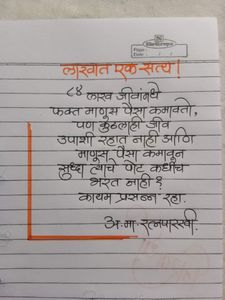 लाखात एक सत्य!
८४ लाख जीवांमधे
फक्त माणूस पैसा कमावतो,
पण कुठलाही जीव
उपाशी रहात नाही आणि
माणूस पैसा कमावून
सुध्दा त्याचे पेट कधीच
भरत नाही?
कायम प्रसन्न रहा.
अ.भा. रत्नपारखी.
Page:
Date: